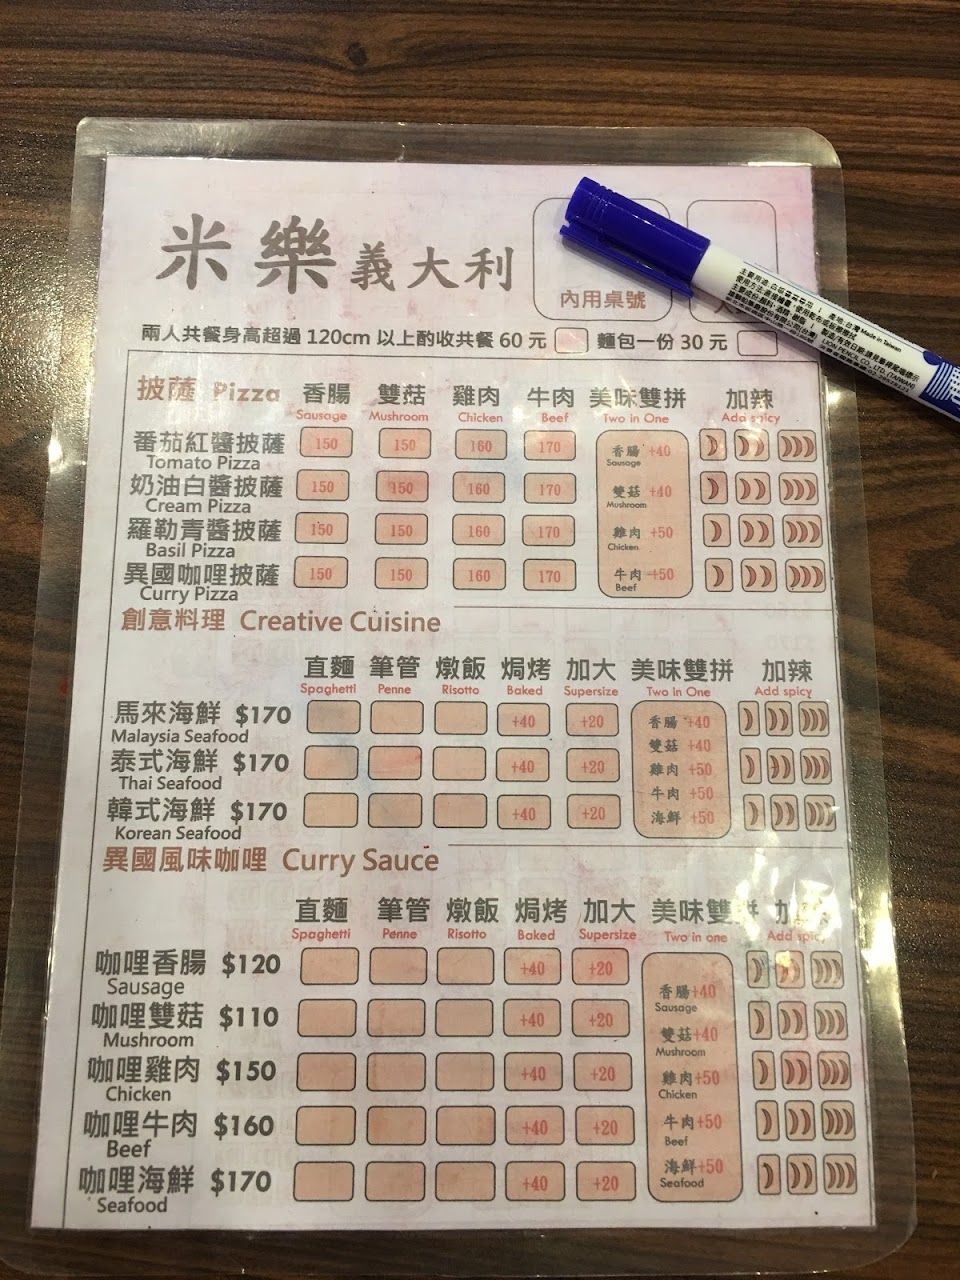 米樂義大利
內用桌號
兩人共餐身高超過 120cm 以上酌收共餐 60 元 麵包一份 30 元
披薩 Pizza 香腸 雙菇 雞肉 牛肉 美味雙拼 加辣
Sausage Mushroom Chicken Beef Two in One Add spicy
番茄紅醬披薩 150 150 160 170 香腸 +40
Tomato Pizza Sausage
奶油白醬披薩 150 150 160 170 雙菇 +40
Cream Pizza Mushroom
羅勒青醬披薩 150 150 160 170 雞肉 +50
Basil Pizza Chicken
異國咖哩披薩 150 150 160 170 牛肉 +50
Curry Pizza Beef
創意料理 Creative Cuisine
直麵 筆管 燉飯 焗烤 加大 美味雙拼 加辣
Spaghetti Penne Risotto Baked Supersize Two in One Add spicy
馬來海鮮 $170 +40 +20 香腸 +40
Malaysia Seafood 雙菇 +40
泰式海鮮 $170 +40 +20 雞肉 +50
Thai Seafood 牛肉 +50
韓式海鮮 $170 +40 +20 海鮮 +50
Korean Seafood
異國風味咖哩 Curry Sauce
直麵 筆管 燉飯 焗烤 加大 美味雙拼 加辣
Spaghetti Penne Risotto Baked Supersize Two in one Add spicy
咖哩香腸 $120 +40 +20 香腸+40
Sausage Sausage
咖哩雙菇 $110 +40 +20 雙菇+40
Mushroom Mushroom
咖哩雞肉 $150 +40 +20 雞肉+50
Chicken Chicken
咖哩牛肉 $160 +40 +20 牛肉+50
Beef Beef
咖哩海鮮 $170 +40 +20 海鮮+50
Seafood Seafood
產地:台灣 Made in Taiwan
LION PENCIL CO., LTD. (TAIWAN)